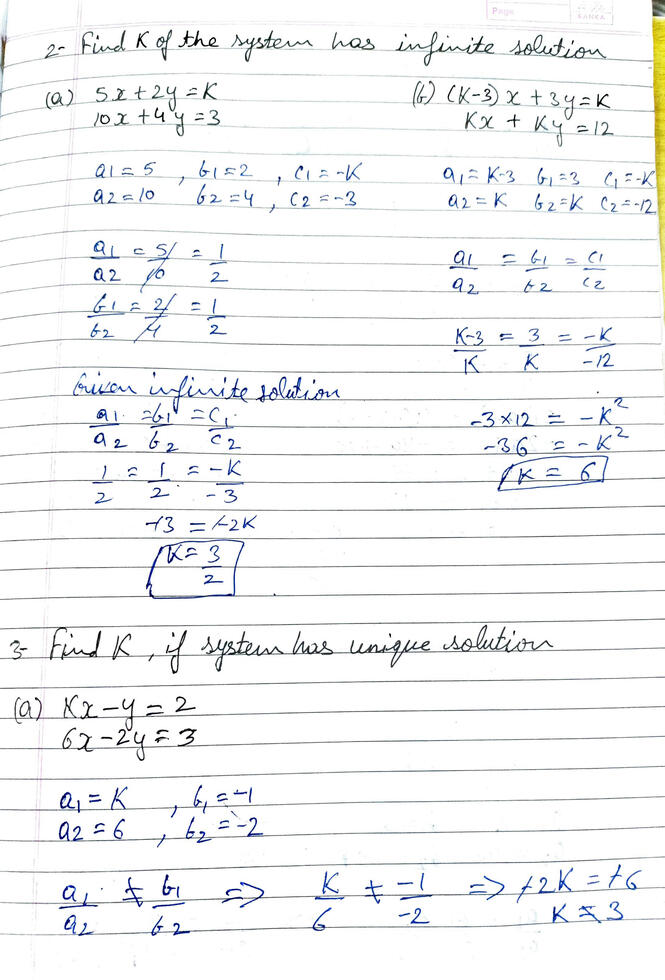 Page
SANKA
2- Find K of the system has infinite solution
(a) 5x + 2y = K
10x + 4y = 3
a1 = 5 , b1 = 2 , C1 = -K
a2 = 10 b2 = 4 , C2 = -3
a1/a2 = 5/10 = 1/2
b1/b2 = 2/4 = 1/2
Given infinite solution
a1/a2 = b1/b2 = C1/C2
1/2 = 1/2 = -K/-3
-3 = -2K
K = 3/2
(b) (K-3) x + 3y = K
Kx + Ky = 12
a1 = K-3 b1 = 3 C1 = -K
a2 = K b2 = K C2 = -12
a1/a2 = b1/b2 = C1/C2
K-3/K = 3/K = -K/-12
-3 × 12 = -K²
-36 = -K²
K = 6
3- Find K , if system has unique solution
(a) Kx - y = 2
6x - 2y = 3
a1 = K , b1 = -1
a2 = 6 , b2 = -2
a1/a2 ≠ b1/b2 => K/6 ≠ -1/-2 => -2K = -6
K ≠ 3